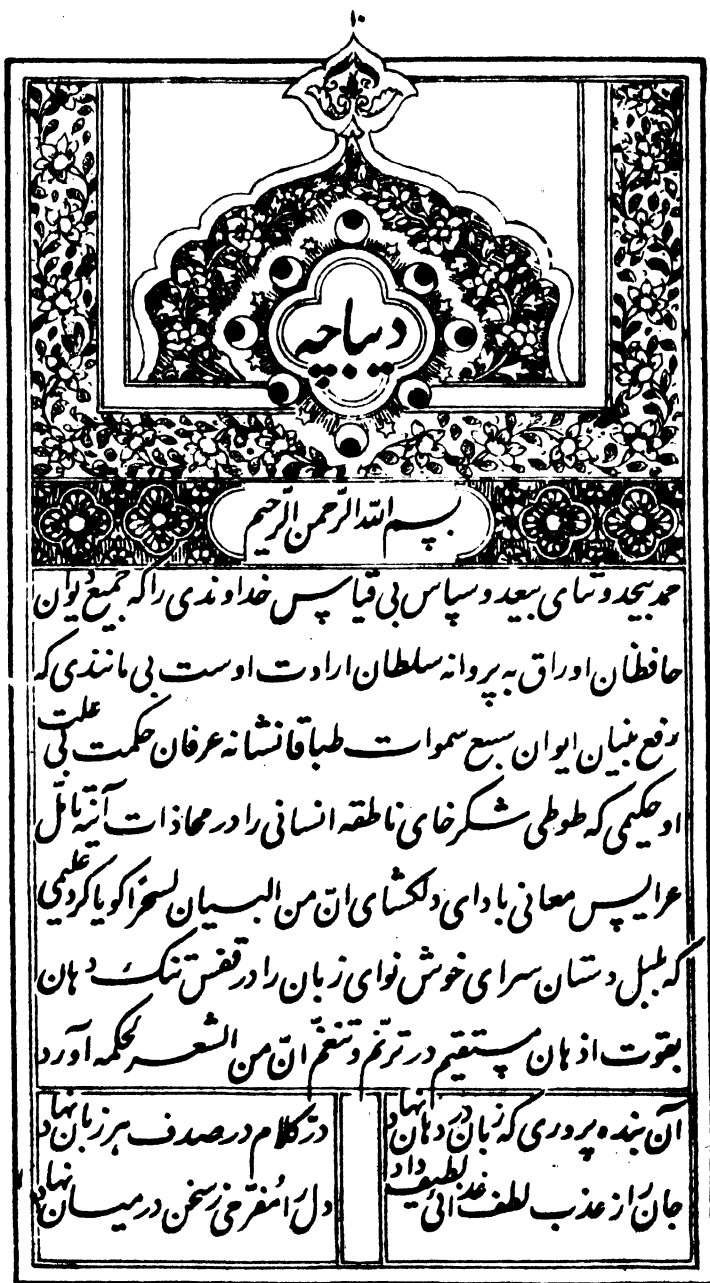 ۱۰
دیباچه
بسم الله الرّحمن الرّحیم
حمد بیحد و ثنای بیعد و سپاس بی قیاس خداوندی را که جمیع دیوان
حافظان اوراق به پروانه سلطان ارادت اوست بی مانندی که
رفع بنیان ایوان سبع سموات طباقا نشانه عرفان حکمت بی علت
او حکیمی که طوطی شکر خای ناطقه انسانی را در محاذات آینه تامّل
عرایس معانی بادای دلکشای انّ من البیان لسحرا کویا کرد علیمی
که بلبل دستان سرای خوش نوای زبان را در قفس تنک دهان
بقوت اذهان مستقیم در ترنّم و تنغّم انّ من الشعر لحکمه آورد
آن بنده پروری که زبان در دهان نهاد
درّ کلام در صدف هر زبان نهاد
جان را ز عذب لطف غذائی لطیف داد
دل را مُفرحی ز سخن در میان نهاد